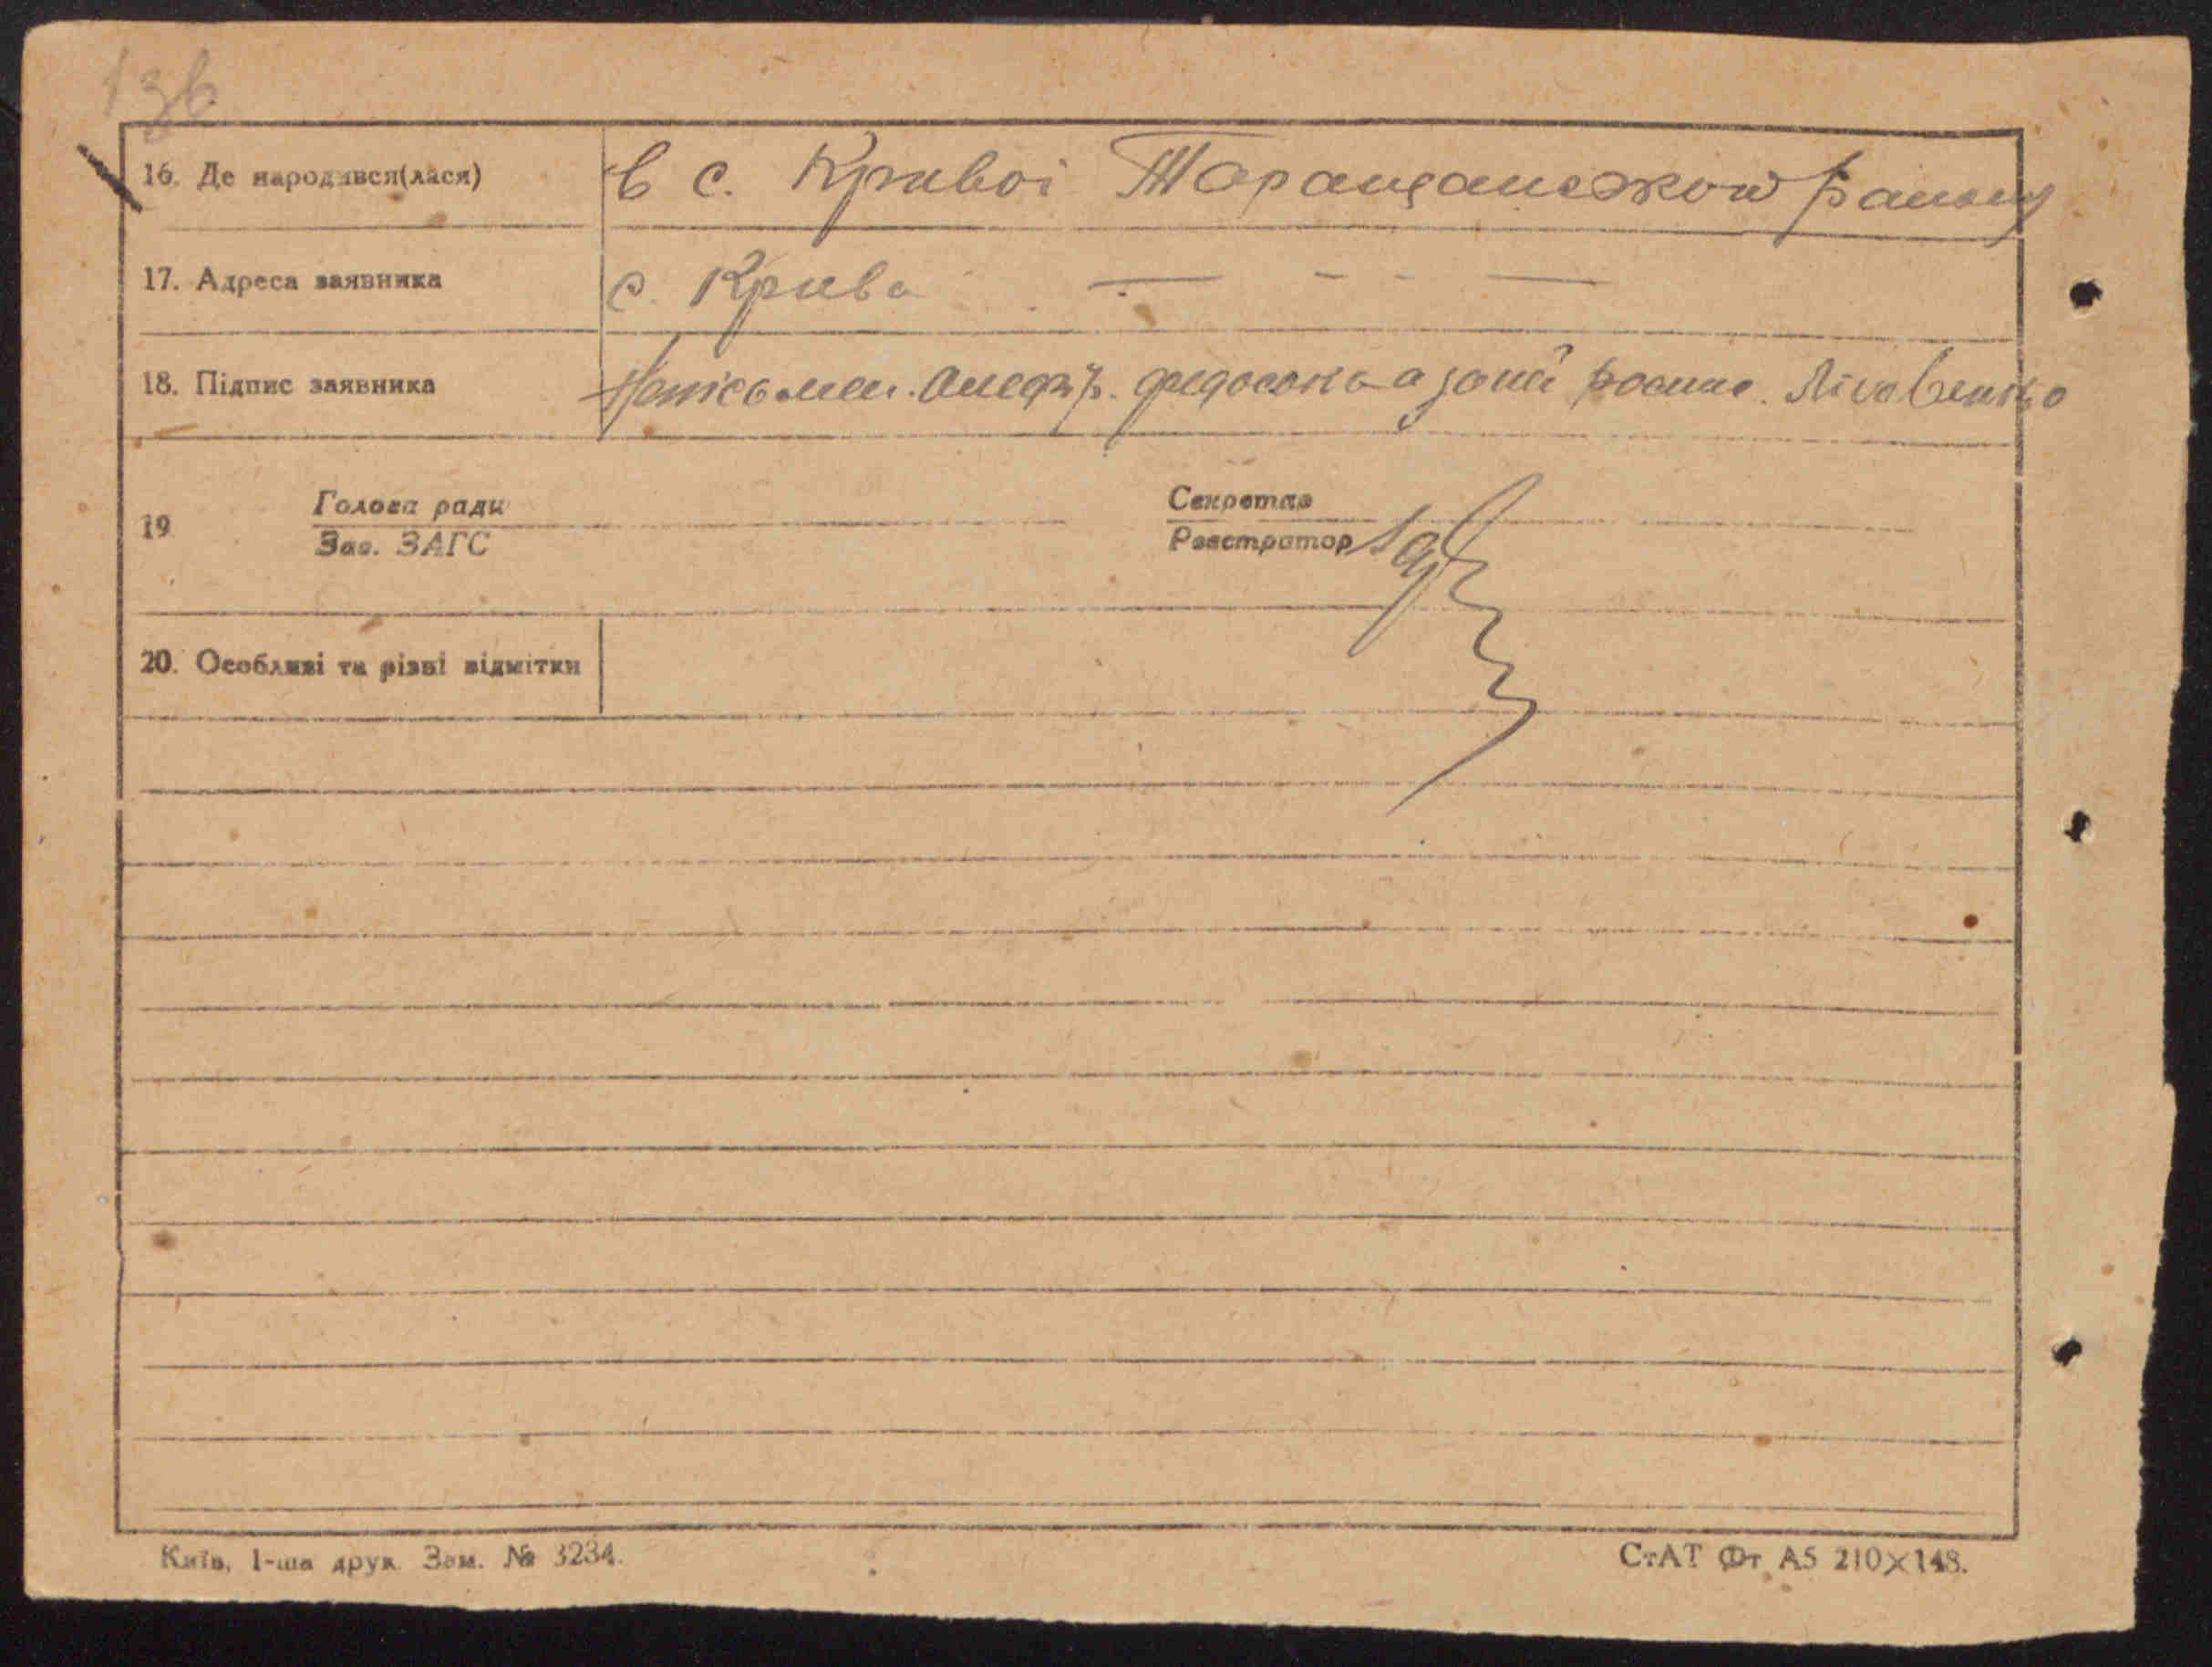 136
16. Де народився(лася) в с. Кривоі Таращанського району
17. Адреса заявника с. Крива — - - —
18. Підпис заявника а за неї Лісовенко
19 Голова ради Секретар
Зав. ЗАГС Реєстратор
20. Особливі та різні відмітки
Київ, 1-ша друк. Зам. № 3234.
СтАТ Фт А5 210×148.